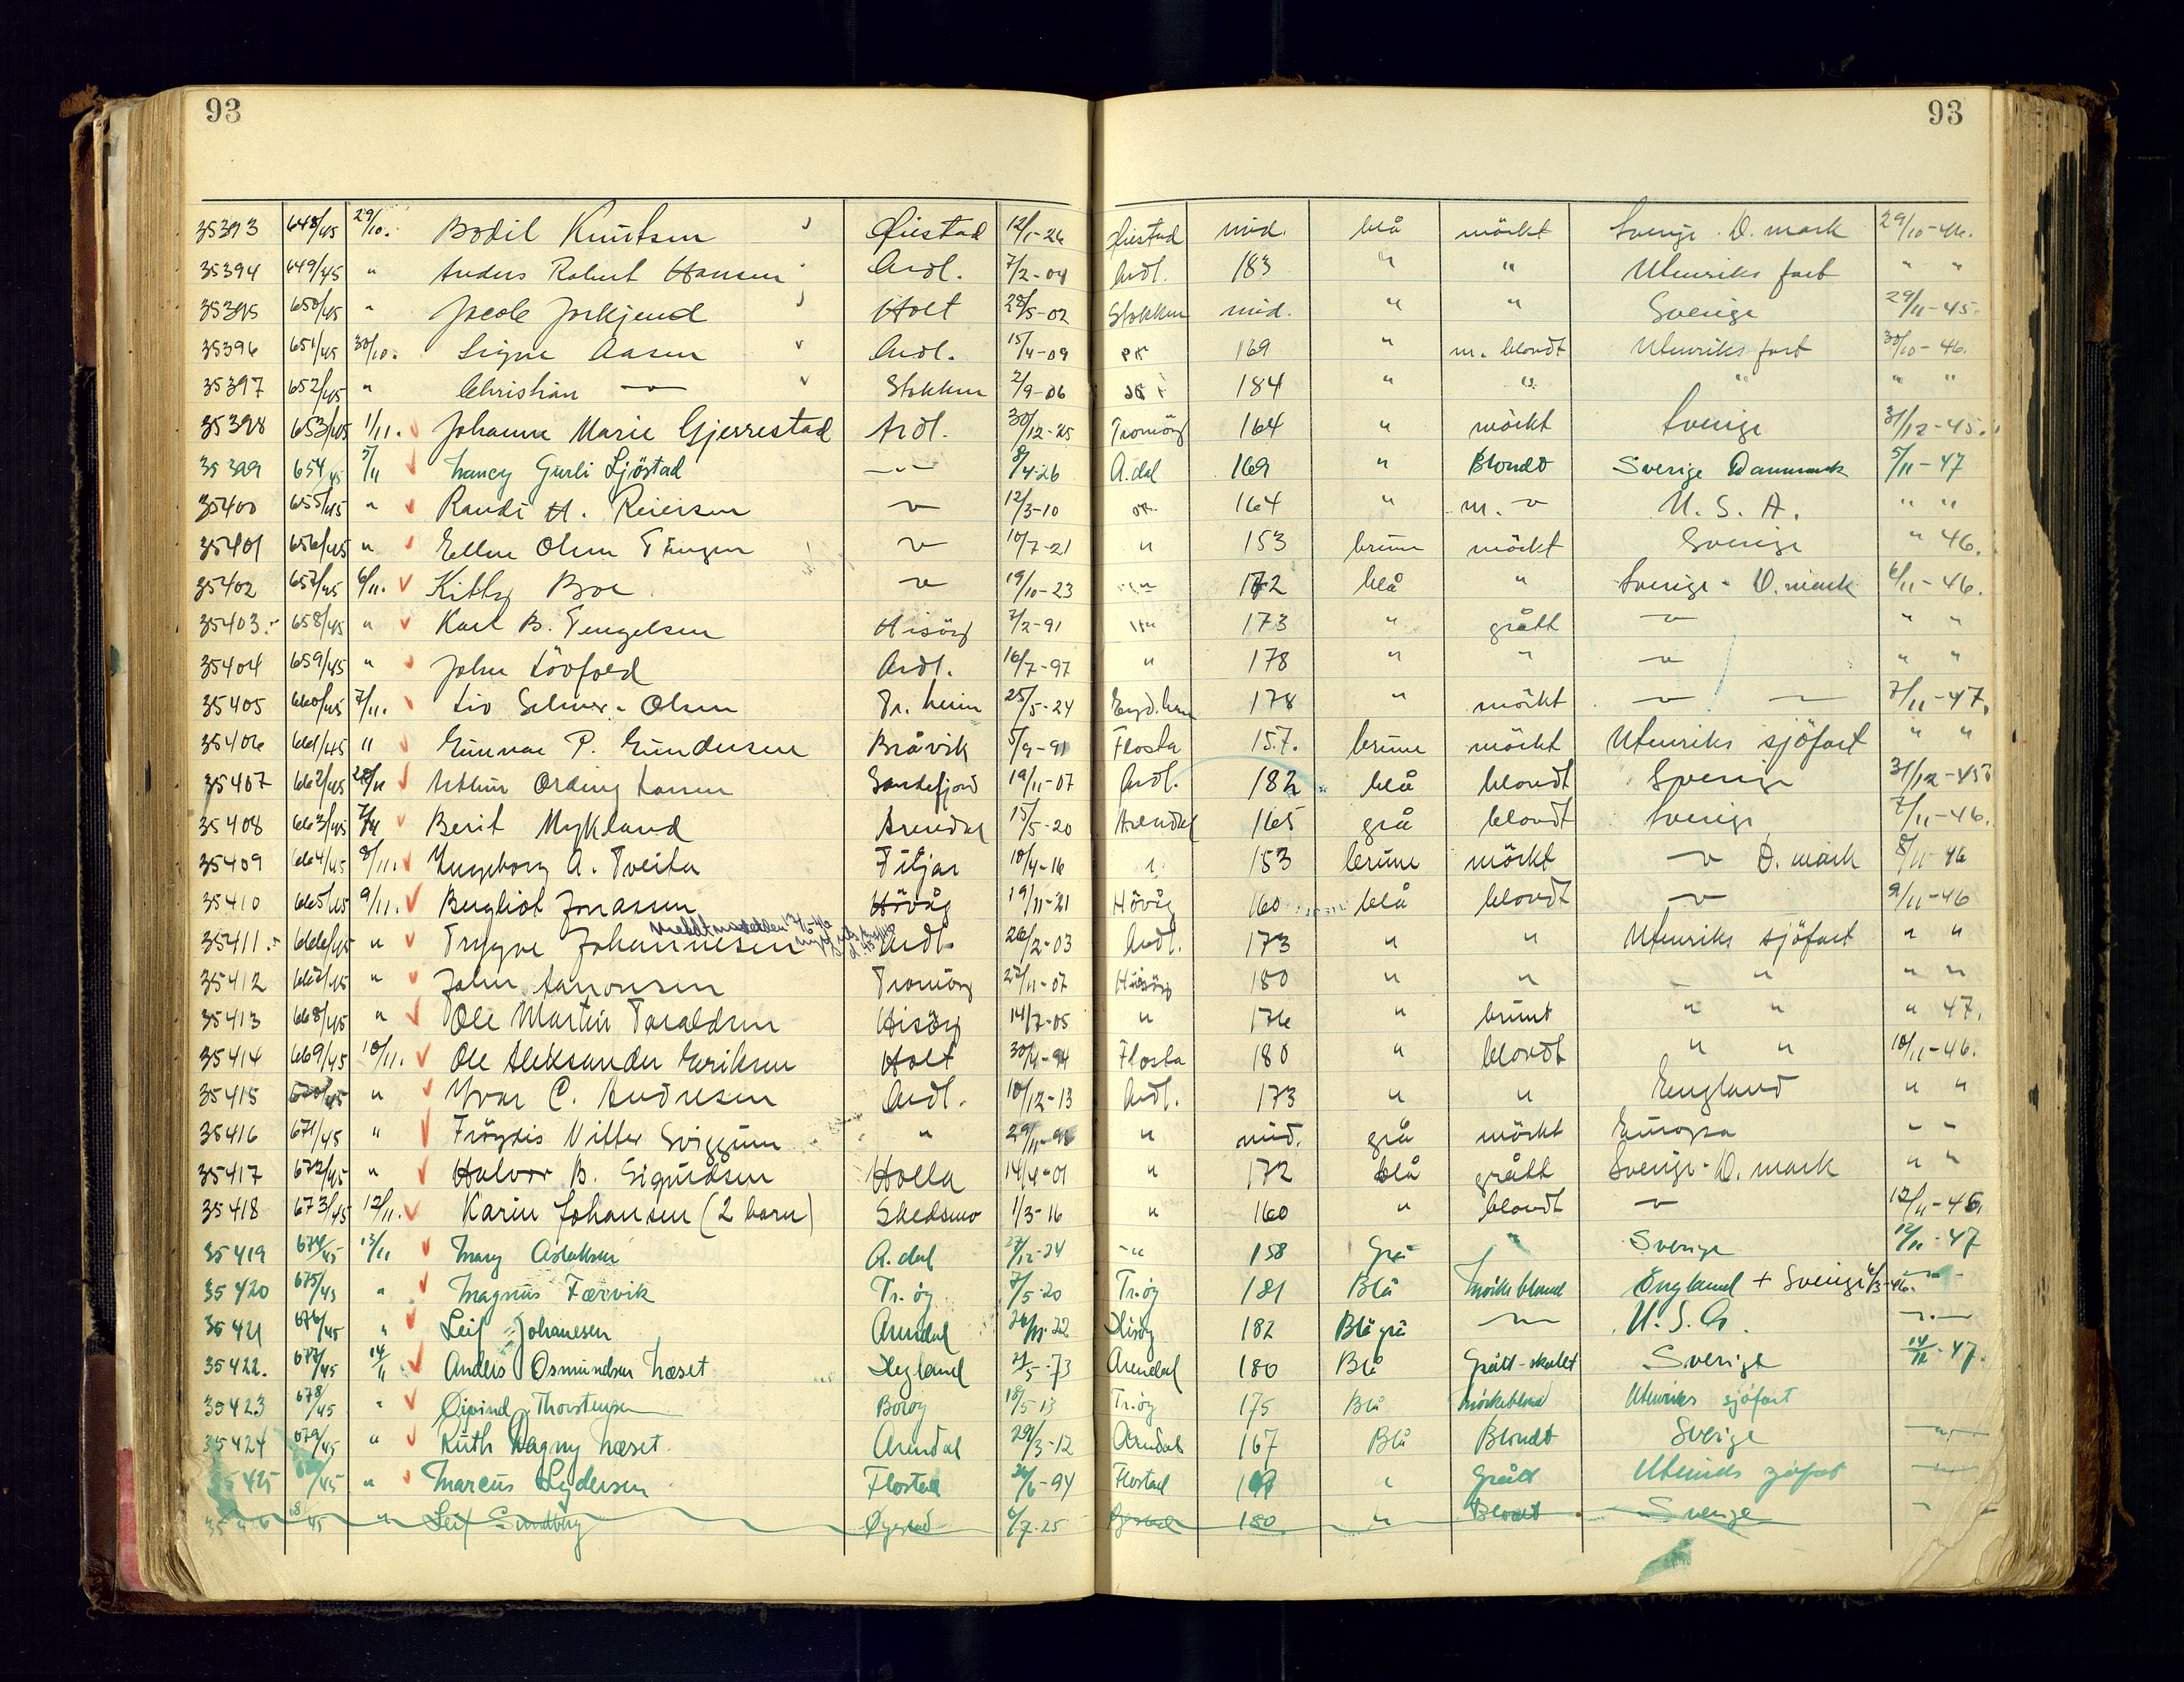 93 93
35393 648/45 29/10. Bodil Knutsen Øiestad 12/1-26 Øiestad mid. blå mörkt Sverige D. mark 29/10-46.
35394 649/45 " Anders Robert Hansen Ardl. 7/2-04 Ardl. 183 " " Utenriks fart " "
35395 650/45 " Jacob Holt 28/5-02 Stokken mid. " " Sverige 29/11-45.
35396 651/45 30/10. Signe Aasen Ardl. 15/4-09 169 " m. blondt Utenriks fart 30/10-46.
35397 652/45 " Christian — Stokken 2/9-06 184 " " " " "
35398 653/45 1/11. Johanne Marie Gjerrestad Ardl. 30/12-25 Tromöy 164 " mörkt Sverige 31/12-45.
35399 654/45 5/11 Nancy Gurli Sjöstad —"— 8/4-26 A.dal 169 " Blondt Sverige Danmark 5/11-47
35400 655/45 " Randi H. Reiersen — 12/3-10 164 " m. — U. S. A. " "
35401 656/45 " Ellen Olsen Tangen — 10/7-21 " 153 brune mörkt Sverige " 46.
35402 657/45 6/11. Kitty Boe — 19/10-23 " 172 blå " Sverige - D. mark 6/11-46.
35403 658/45 " Karl B. Tengelsen Hisöy 7/2-91 " 173 " grått — " "
35404 659/45 " John Lövfold Ardl. 16/7-97 " 178 " " — " "
35405 660/45 7/11. Liv Selmer-Olsen Tr. heim 25/5-24 Eyd.hvn 178 " mörkt — — 7/11-47.
35406 661/45 " Gunnar P. Gundersen Bråvik 5/9-91 Flosta 157. brune mörkt Utenriks sjöfart " "
35407 662/45 Arthur Ording Larsen Sandefjord 19/11-07 Ardl. 182 blå blondt Sverige 31/12-45
35408 663/45 7/11 Berit Mykland Arendal 15/5-20 Arendal 165 grå blondt Sverige 7/11-46.
35409 664/45 8/11. Ingeborg A. Tveita Fitjar 10/4-16 " 153 brune mörkt — D. mark 8/11-46
35410 665/45 9/11. Bergliot Jonassen Hövåg 19/11-21 Hövåg 160 blå blondt — 9/11-46
35411 666/45 " Trygve Johannesen Ardl. 26/2-03 Ardl. 173 " " Utenriks sjöfart " "
35412 667/45 " John Aanonsen Tromöy 27/11-07 Hisöy 180 " " " " "
35413 668/45 " Ole Martin Taraldsen Hisöy 14/7-05 " 176 " brunt " " " 47.
35414 669/45 10/11. Ole Aleksander Eriksen Holt 30/4-94 Flosta 180 " blondt " " 10/11-46.
35415 670/45 " Yvar C. Andresen Ardl. 10/12-13 Ardl. 173 " " England " "
35416 671/45 " Fröydis Viggum " " mid. grå mörkt Europa " "
35417 672/45 " Halvor B. Sigurdsen Holla 14/4-01 " 172 blå grått Sverige-D. mark " "
35418 673/45 12/11. Karin Johansen (2 barn) Skedsmo 1/3-16 " 160 " blondt — 12/11-46.
35419 674/45 13/11 Mary Aslaksen A.dal 27/12-24 —"— 158 Grå " Sverige 12/11-47
35420 675/45 " Magnus Færvik Tr.öy 7/5-20 Tr.öy 181 Blå mörkeblond England + Sverige —"—
35421 676/45 " Leif Johanesen Arendal Hisöy 182 Blågrå —"— U.S.A. —"—
35422. 677/45 14/11 Anders Osmundsen Næset 21/5-73 Arendal 180 Blå Grått-skallet Sverige 14/11-47.
35423 678/45 " Øivind Thorstensen Boröy 18/5-13 Tr.öy 175 Blå mörkeblond Utenriks sjöfart
35424 679/45 " Ruth Dagny Næset. Arendal 29/3-12 Arendal 167 Blå Blondt Sverige —"—
/45 " Marcus Lydersen Flostad 26/6-94 Flostad " Grått Utenriks sjöfart —"—
/45 " Leif Sundberg Øyestad 6/7-25 Øyestad 180 " Blondt Sverige